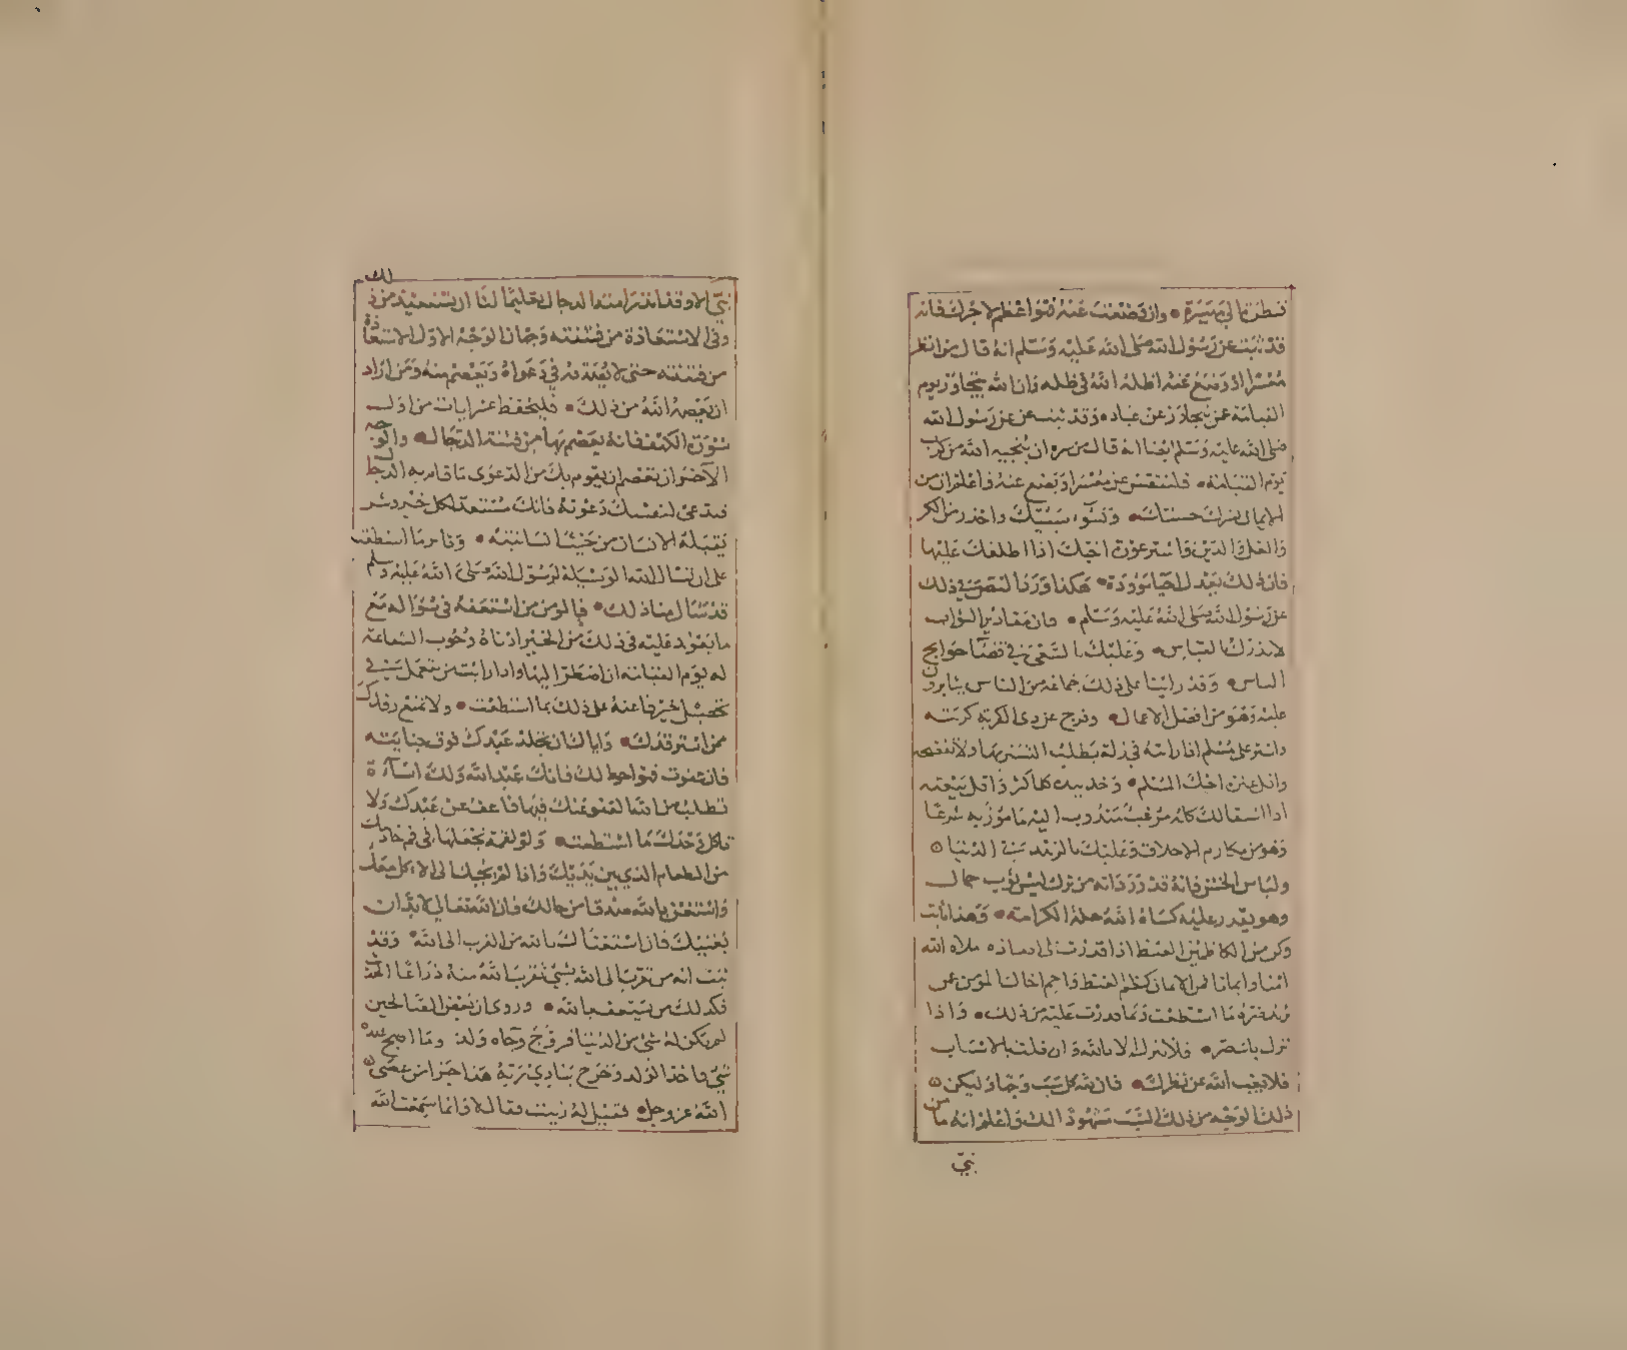 فنظرة إلى ميسرة وان وضعت عنه فهو اعظم لاجرك فانه
قد ثبت عن رسول الله صلى الله عليه وسلم انه قال من انظر
معسرا او وضع عنه اظله الله في ظله وان الله يتجاوز يوم
القيامة عن من يجاوز عن عباده وقد ثبت عن رسول الله
صلى الله عليه وسلم ايضا انه قال من سره ان ينجيه الله من كرب
يوم القيامة فلينفس عن معسر او يضع عنه واعلم ان من
الايمان ان تسرك حسنتك وتسوءك سيئتك واحذر من الكبر
والغل والدين واستر عورة اخيك اذا اطلعك عليها
فان ذلك يعدل احيا موؤدة هكذا ورد النص في ذلك
عن رسول الله صلى الله عليه وسلم فان مقادير الثواب
لا تدرك بالقياس وعليك بالسعي في قضا حوايج
الناس وقد راينا على ذلك جماعة من الناس يثابرون
عليه وهو من افضل الاعمال وفرج عن ذي الكربة كربته
واستر على مسلم اذا رايته في زلة يطلب التستر بها ولا تفضحه
واقل عثرة اخيك المسلم وخذ بيده كلما عثر واقل بيعته
اذا استقالك فانه مرغب مندوب اليه مامور به شرعا
وهو من مكارم الاخلاق وعليك بالزهد في الدنيا
ولباس الخشن فانه قد ورد انه من ترك لبس ثوب جمال
وهو يقدر عليه كساه الله حلة الكرامة وهذا ثابت
وكن من الكاظمين الغيظ اذا قدرت على انفاذه ملأه الله
امنا وايمانا فمن الايمان كظم الغيظ واحم اخاك المؤمن ممن
يريد ضره ما استطعت وما قدرت عليه من ذلك واذا
نزل بك ضر فلا تنزله الا بالله وان قلت بالاسباب
فلا يغيب الله عن نظرك فان لله في كل سبب وجها وليكن
ذلك الوجه من ذلك السبب مشهودا لك واعلم انه ما من
نبي
نبي الا وقد انذر امته الدجال تعليما لنا ان نستعيذ من ذلك
وفي الاستعاذة من فتنته وجهان الوجه الاول الاستعاذة
من فتنته حتى لا نصدقه في دعواه ونعصم منه ومن اراد
ان يعصمه الله من ذلك فليحفظ عشر ايات من اول
سورة الكهف فانه يعصم بها من فتنة الدجال والوجه
الآخر ان تعصم ان يقوم بك من الدعوى ما قام به الدجال
فتدعي لنفسك دعوته فانك مستعد لكل خير وشر
يقبله الانسان من حيث انسانيته وثابر ما استطعت
على ان تسال الله الوسيلة لرسول الله صلى الله عليه وسلم
قد سال منا ذلك فالمؤمن من اسعفه في سؤاله مع
ما يعود عليه في ذلك من الخير ادناه وجوب الشفاعة
له يوم القيامة ان اضطر اليها واذا رايت من يتعمل في
تحصيل خير فاعنه على ذلك بما استطعت ولا تمنع رفدك
ممن استرفدك واياك ان تجلد عبدك فوق جنايته
فان عفوت فهو احوط لك فانك عبد الله ولك اساءة
تطلب من الله العفو عنك فيها فاعف عن عبدك ولا
تاكل وحدك ما استطعت ولو لقمة تجعلها في فم خادمك
من الطعام الذي بين يديك واذا لم يجبك الى الاكل معك
واستغن بالله صدقا من حالك فان الله تعالى لا بد ان
يغنيك فان استغناك بالله من القرب الى الله وقد
ثبت انه من تقرب الى الله بشيء تقرب الله منه ذراعا الحديث
فكذلك من يستعفف بالله وروى ان بعض الصالحين
لم يكن له شي من الدنيا فزوج وجاه ولد وما اصبح عنده
شي فاخذ الولد وخرج ينادي به هذا جزا من عصى
الله عز وجل فقيل له زنيت فقال لا وانما سمعت الله